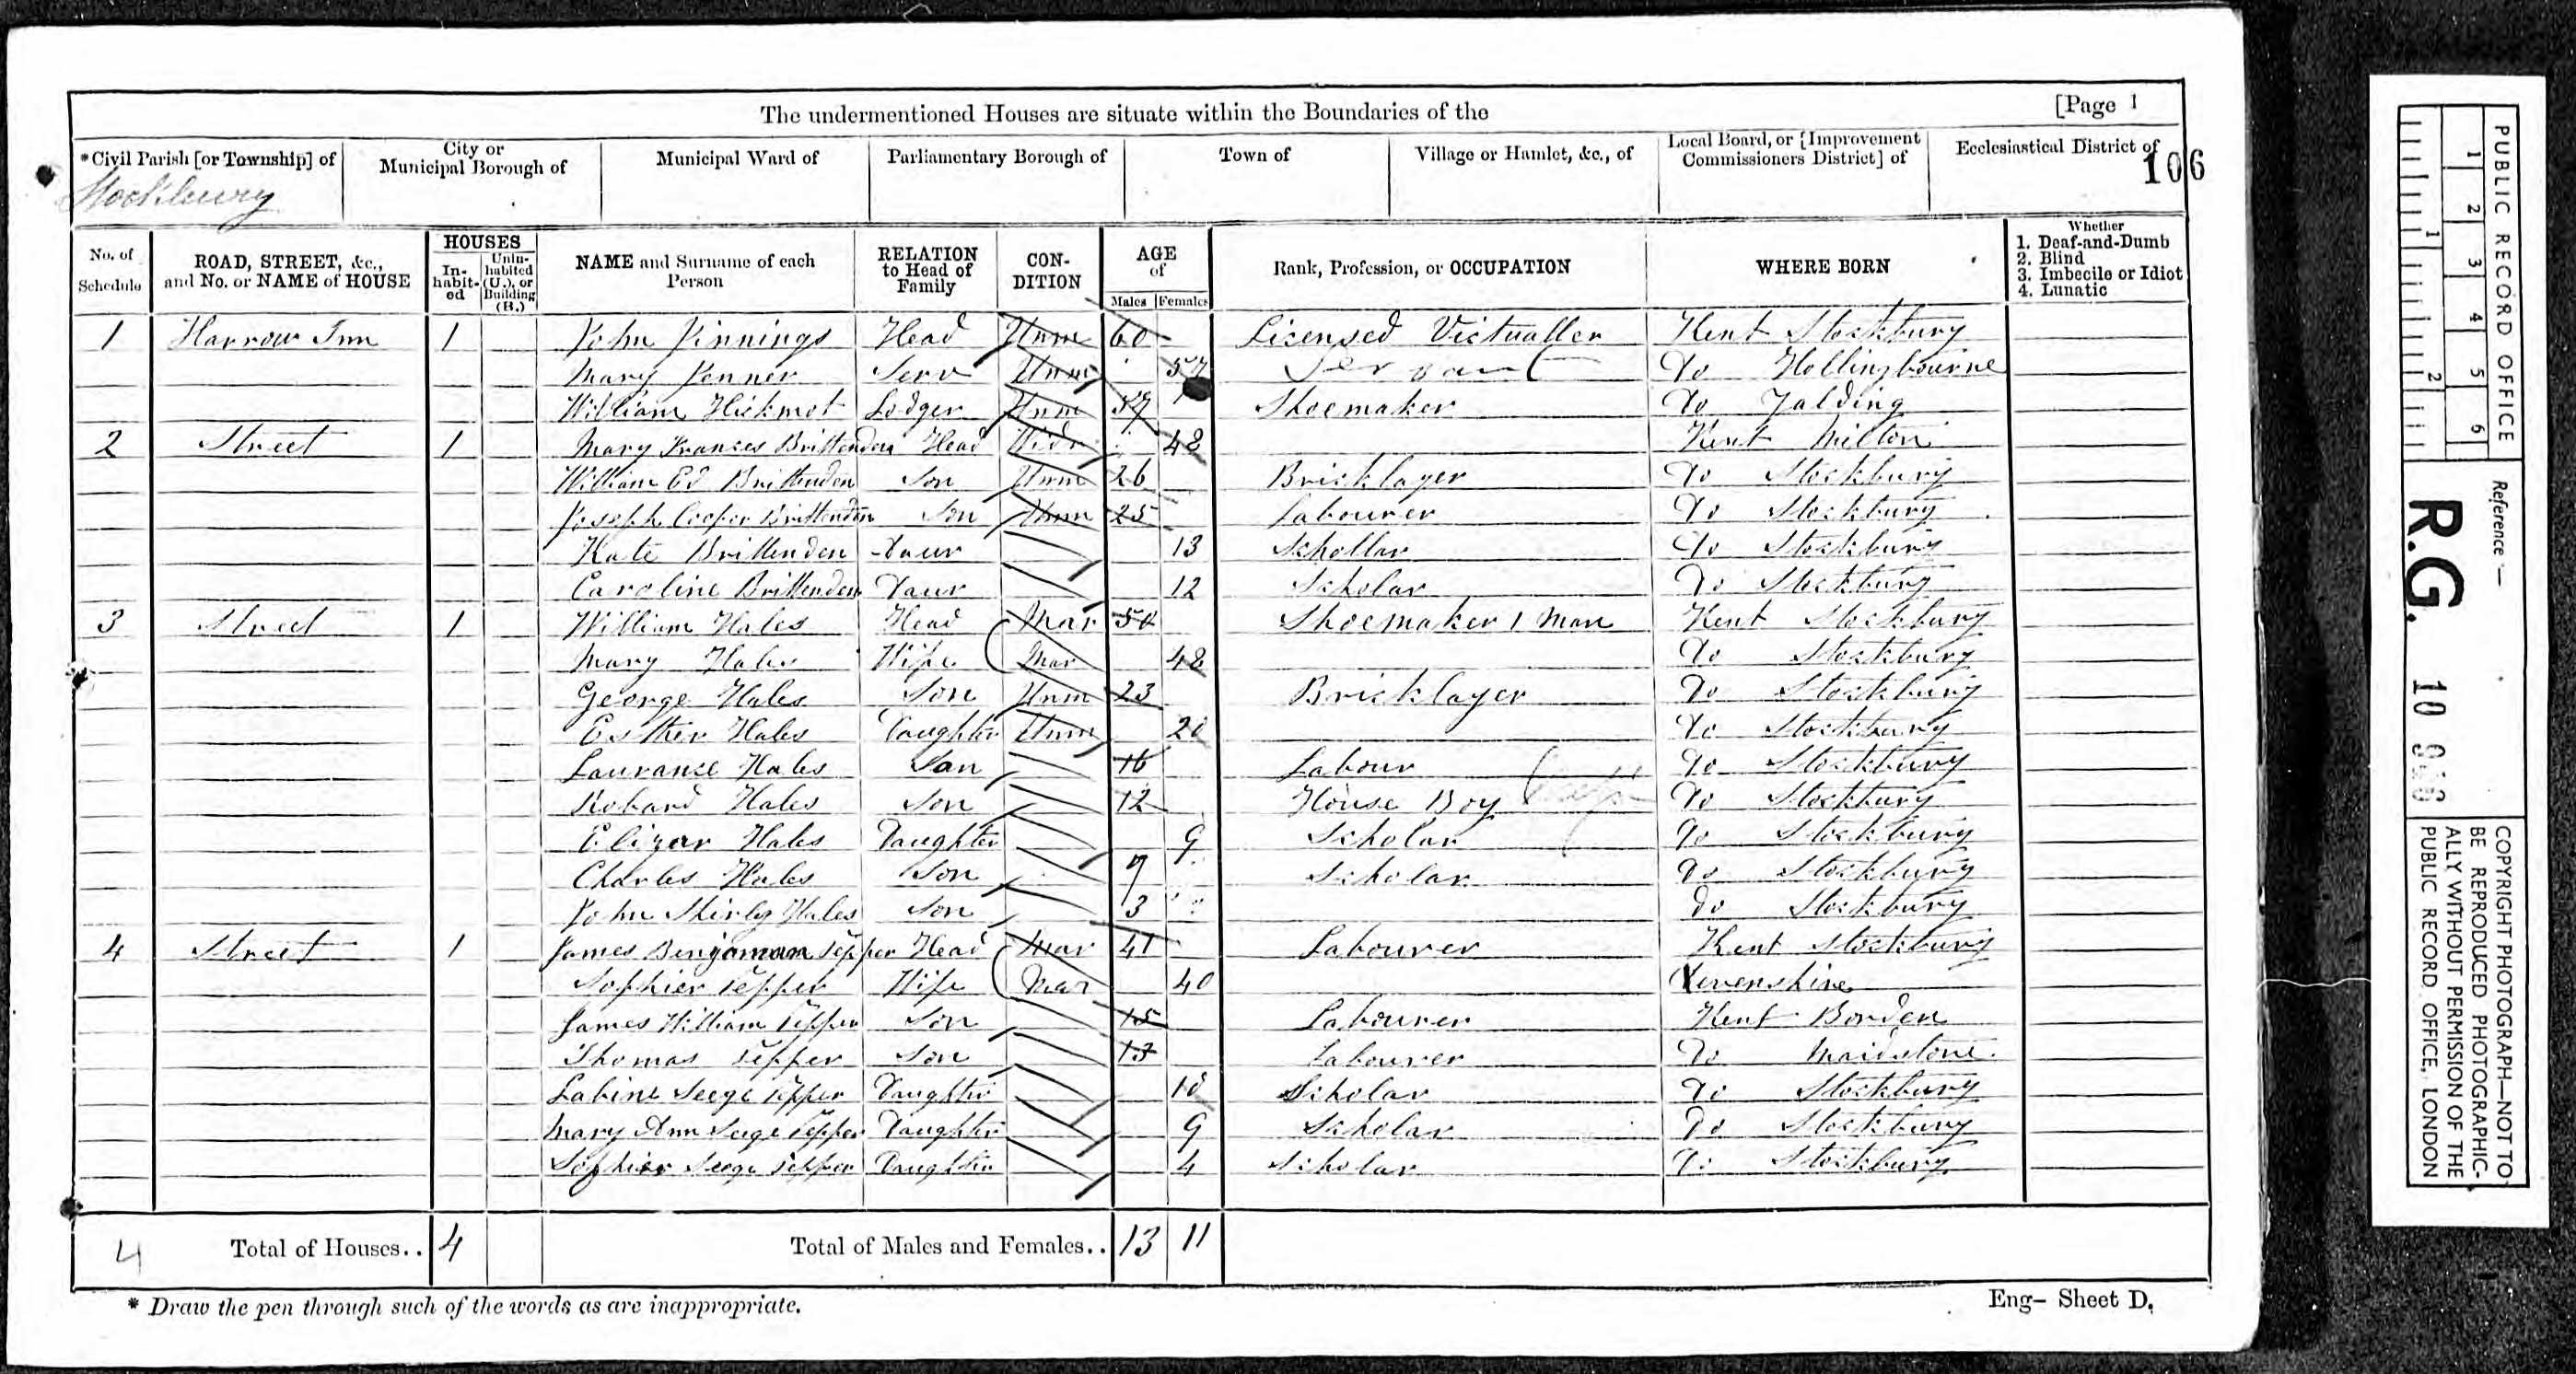 The undermentioned Houses are situate within the Boundaries of the
[Page 1
*Civil Parish [or Township] of
City or Municipal Borough of
Municipal Ward of
Parliamentary Borough of
Town of
Village or Hamlet, &c., of
Local Board, or [Improvement Commissioners District] of
Ecclesiastical District of
Stockbury
106
No. of Schedule
ROAD, STREET, &c., and No. or NAME of HOUSE
HOUSES
In-habit-ed
Unin-habited (U.), or Building (B.)
NAME and Surname of each Person
RELATION to Head of Family
CON-DITION
AGE of
Males
Females
Rank, Profession, or OCCUPATION
WHERE BORN
Whether
1. Deaf-and-Dumb
2. Blind
3. Imbecile or Idiot
4. Lunatic
1 Harrow Inn 1 John Jinnings Head Unm 60 Licensed Victualler Kent Stockbury
Mary Serv Unm 57 Servant Do Hollingbourne
William Hickmot Lodger Unm 57 Shoemaker Do Yalding
2 Street 1 Mary Frances Brittenden Head Widr 48 Kent Milton
William Ed Brittenden Son Unm 26 Bricklayer Do Stockbury
Joseph Cooper Brittenden Son Unm 25 Labourer Do Stockbury
Kate Brittenden Daur 13 Schollar Do Stockbury
Caroline Brittenden Daur 12 Scholar Do Stockbury
3 Street 1 William Hales Head Mar 50 Shoemaker 1 Man Kent Stockbury
Mary Hales Wife Mar 48 Do Stockbury
George Hales Son Unm 23 Bricklayer Do Stockbury
Esther Hales Daughter Unm 20 Do Stockbury
Laurance Hales Son 16 Labour Do Stockbury
Robard Hales Son 12 House Boy Do Stockbury
Elizar Hales Daughter 9 Scholar Do Stockbury
Charles Hales Son 7 Scholar Do Stockbury
John Shirly Hales Son 3 Do Stockbury
4 Street 1 James Benjaman Tepper Head Mar 41 Labourer Kent Stockbury
Sophier Tepper Wife Mar 40 Devenshire
James William Tepper Son 15 Labourer Kent Borden
Thomas Tepper Son 13 Labourer Do Maidstone
Labine Seege Tepper Daughter 10 Scholar Do Stockbury
Mary Ann Seege Tepper Daughter 9 Scholar Do Stockbury
Sophier Seege Tepper Daughter 4 Scholar Do Stockbury
4 Total of Houses.. 4 Total of Males and Females.. 13 11
* Draw the pen through such of the words as are inappropriate.
Eng- Sheet D.
PUBLIC RECORD OFFICE
1 2 3 4 5 6
1 2
Reference:-
R.G. 10
COPYRIGHT PHOTOGRAPH—NOT TO BE REPRODUCED PHOTOGRAPHIC-ALLY WITHOUT PERMISSION OF THE PUBLIC RECORD OFFICE, LONDON